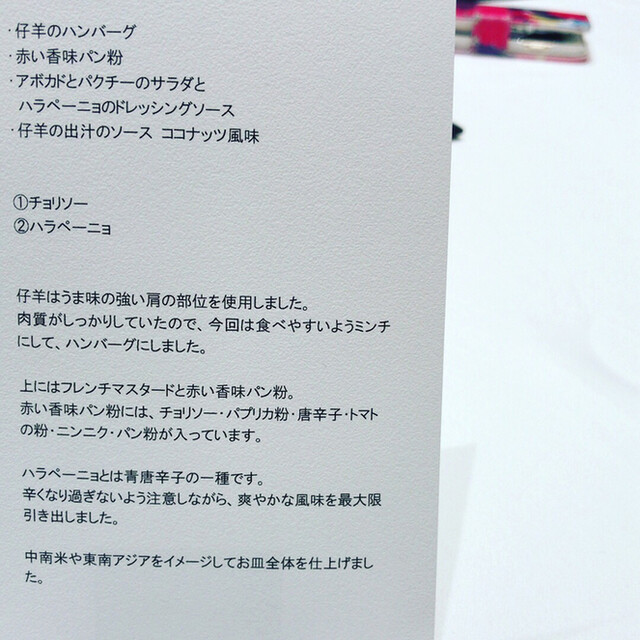 ・仔羊のハンバーグ
・赤い香味パン粉
・アボカドとパクチーのサラダと
ハラペーニョのドレッシングソース
・仔羊の出汁のソース ココナッツ風味
①チョリソー
②ハラペーニョ
仔羊はうま味の強い肩の部位を使用しました。
肉質がしっかりしていたので、今回は食べやすいようミンチ
にして、ハンバーグにしました。
上にはフレンチマスタードと赤い香味パン粉。
赤い香味パン粉には、チョリソー・パプリカ粉・唐辛子・トマト
の粉・ニンニク・パン粉が入っています。
ハラペーニョとは青唐辛子の一種です。
辛くなり過ぎないよう注意しながら、爽やかな風味を最大限
引き出しました。
中南米や東南アジアをイメージしてお皿全体を仕上げまし
た。